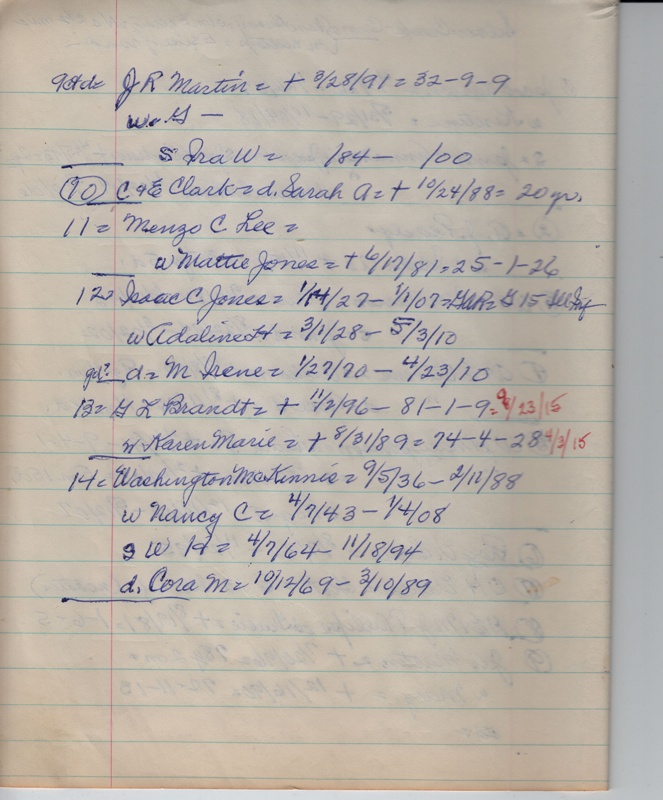 9td= J R Martin = + 3/28/91 = 32-9-9
w. G —
s Ira W = /84 — /00
(10) C & E Clark = d. Sarah A = + 10/24/88 = 20 yr.
11 = Menzo C Lee =
w Mattie Jones = + 6/17/81 = 25-1-26
12 = Isaac C Jones = 1/14/27 — 1/1/07 = GAR = G 15 Inf
w Adaline H = 3/1/28 — 5/3/10
gd? d = M Irene = 1/27/70 — 4/23/10
13 = G L Brandt = + 11/2/96 — 81-1-9 = 9/23/15
w Karen Marie = + 8/31/89 = 74-4-28 4/3/15
14 = Washington McKinnie = 9/5/36 — 2/12/88
w Nancy C = 4/7/43 — 1/4/08
s W H = 4/7/64 — 11/18/94
d. Cora M = 10/12/69 — 3/10/89